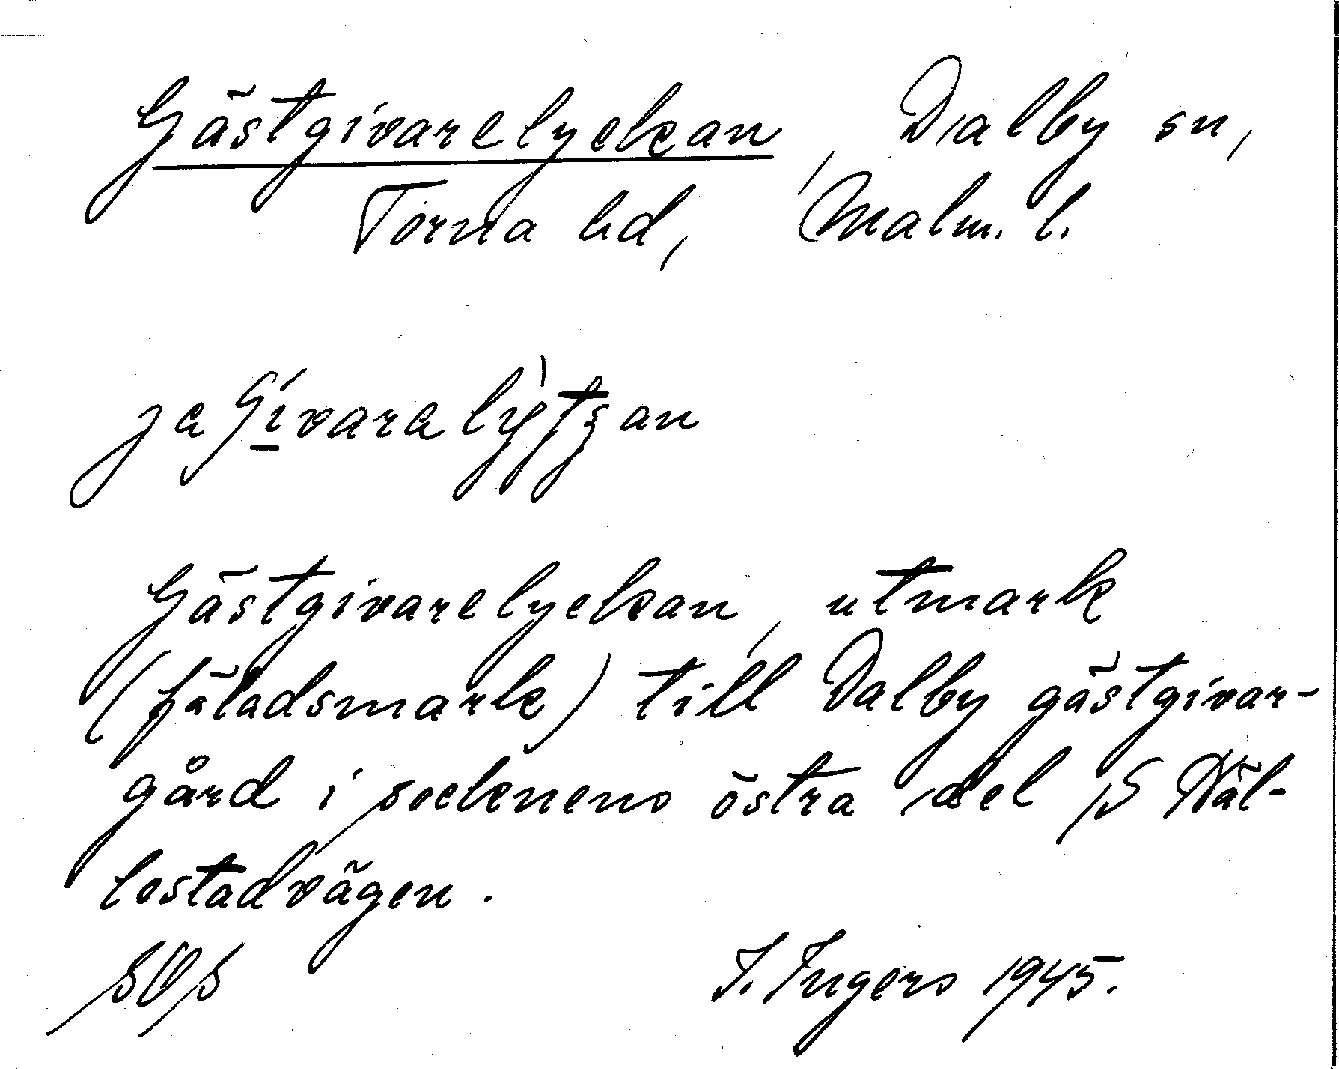 Gästgivarelyckan, Dalby sn,
Torna hd, Malm. l.
Gästgivarelyckan, utmark
(fäladsmark) till Dalby gästgivar-
gård i socknens östra del, S Häl-
lestadvägen.
I. Ingers 1945.